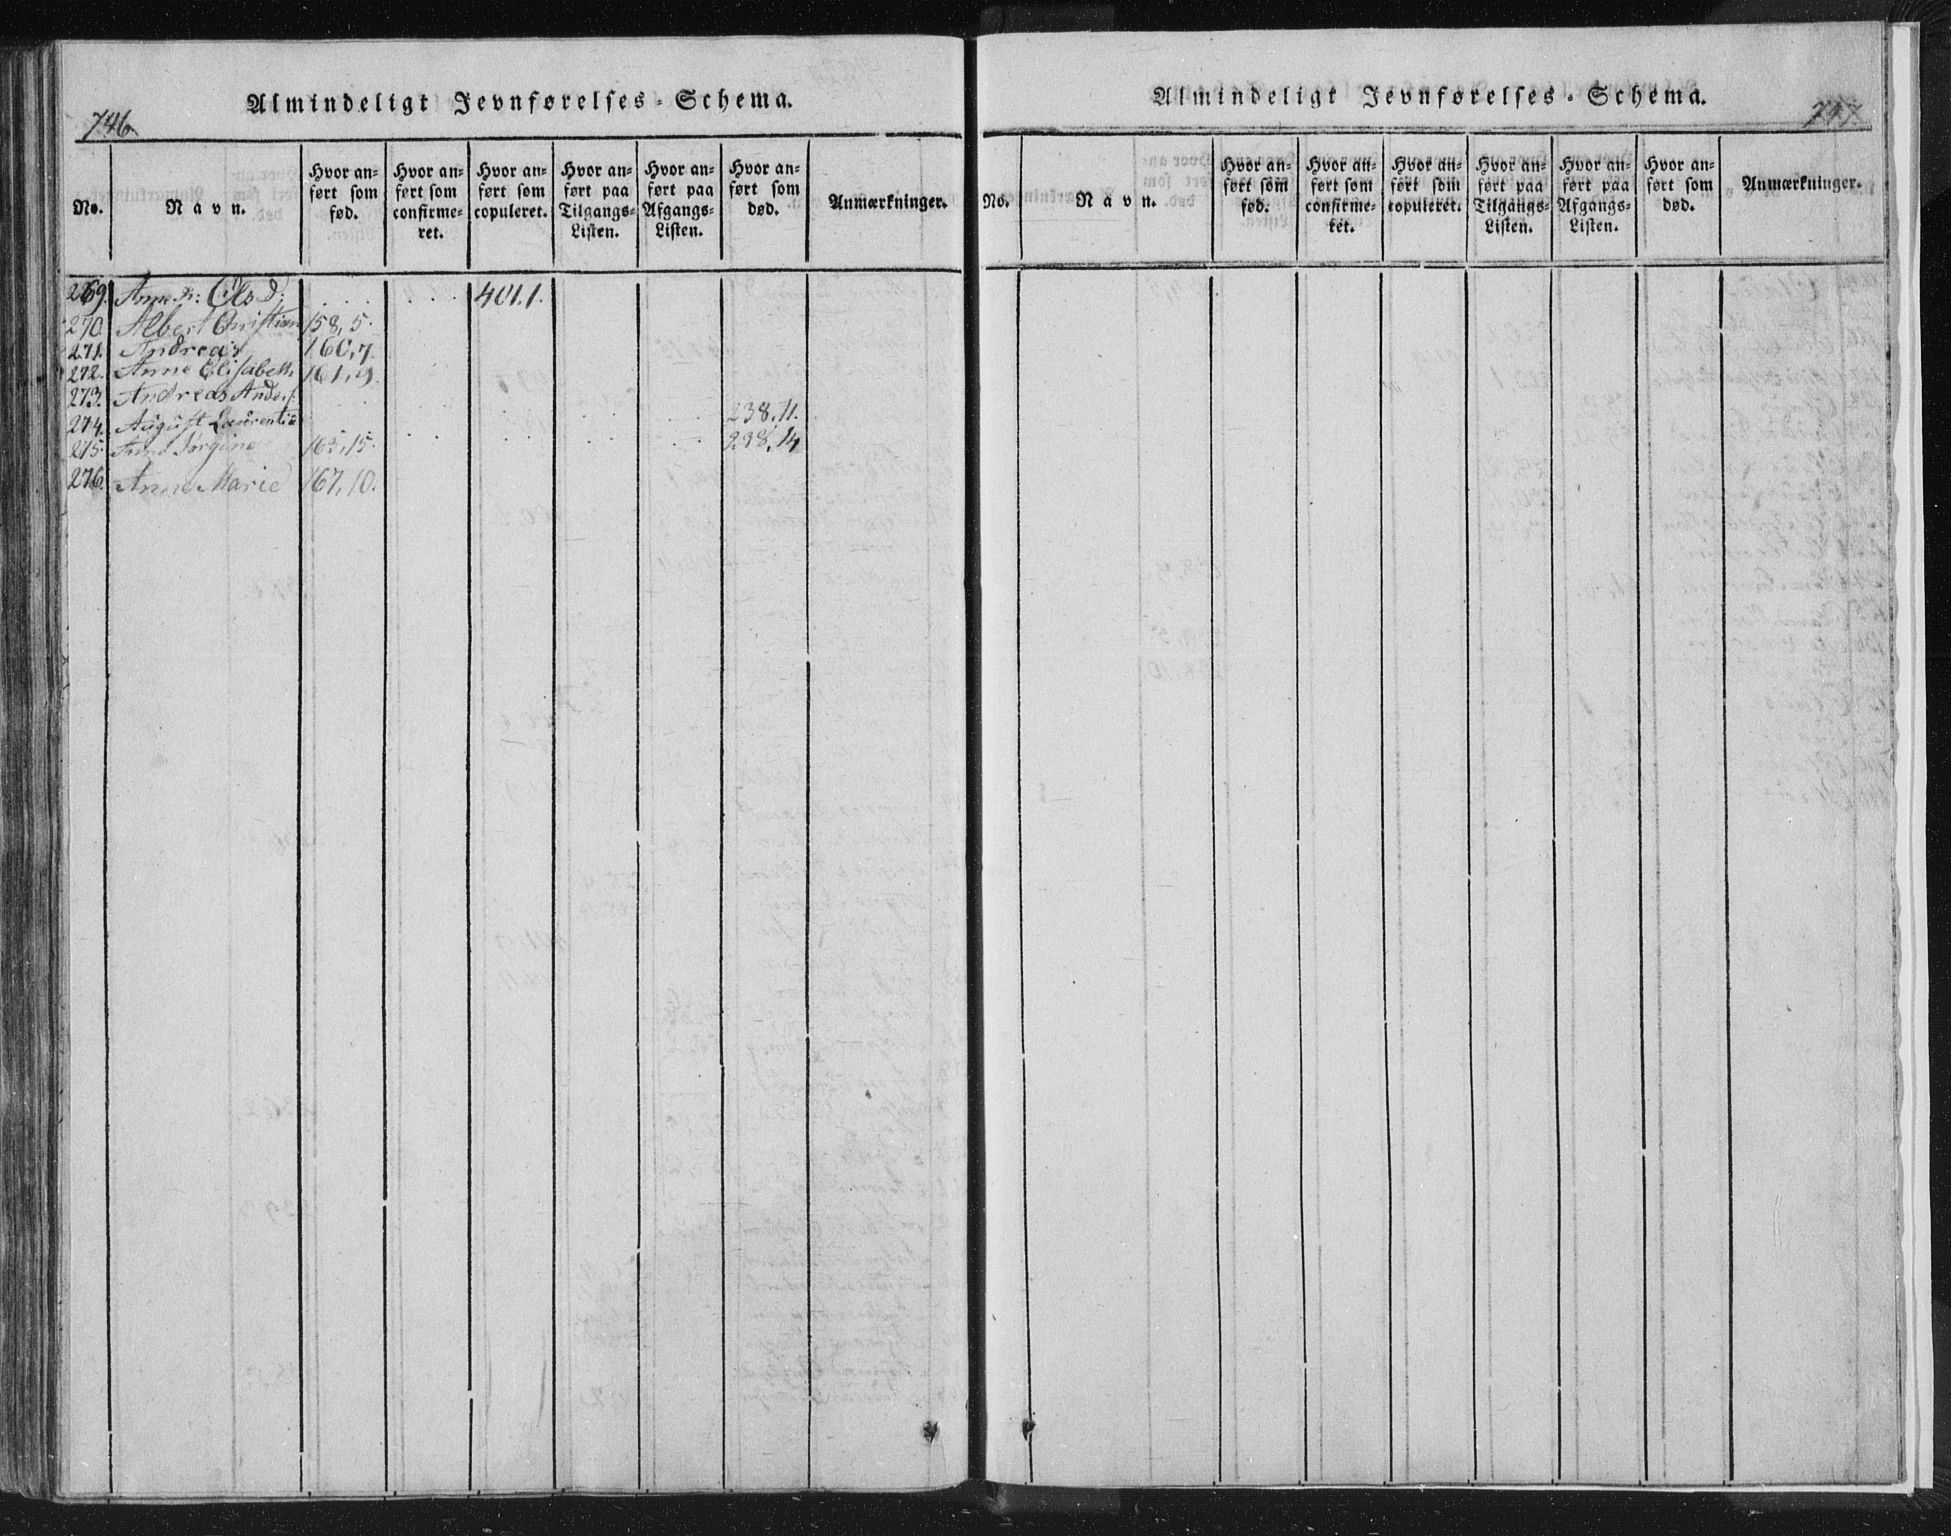 746
Almindeligt Jevnførelses-Schema.
No. | Navn. | Hvor anført som fød. | Hvor anført som confirmeret. | Hvor anført som copuleret. | Hvor anført paa Tilgangs-Listen. | Hvor anført paa Afgangs-Listen. | Hvor anført som død. | Anmærkninger.
269. Anne K: Olsd: . . . . . . . 401.1.
270. Albert Christian 158,5.
271. Andreas 160,7.
272. Anne Elisabeth 161,9.
273. Andreas Anders.
274. August Laurentius 238,11.
275. Jørgine 163,15. 238,14
276. Anne Marie 167,10.
Almindeligt Jevnførelses-Schema.
747
No. | Navn. | Hvor anført som fød. | Hvor anført som confirmeret. | Hvor anført som copuleret. | Hvor anført paa Tilgangs-Listen. | Hvor anført paa Afgangs-Listen. | Hvor anført som død. | Anmærkninger.